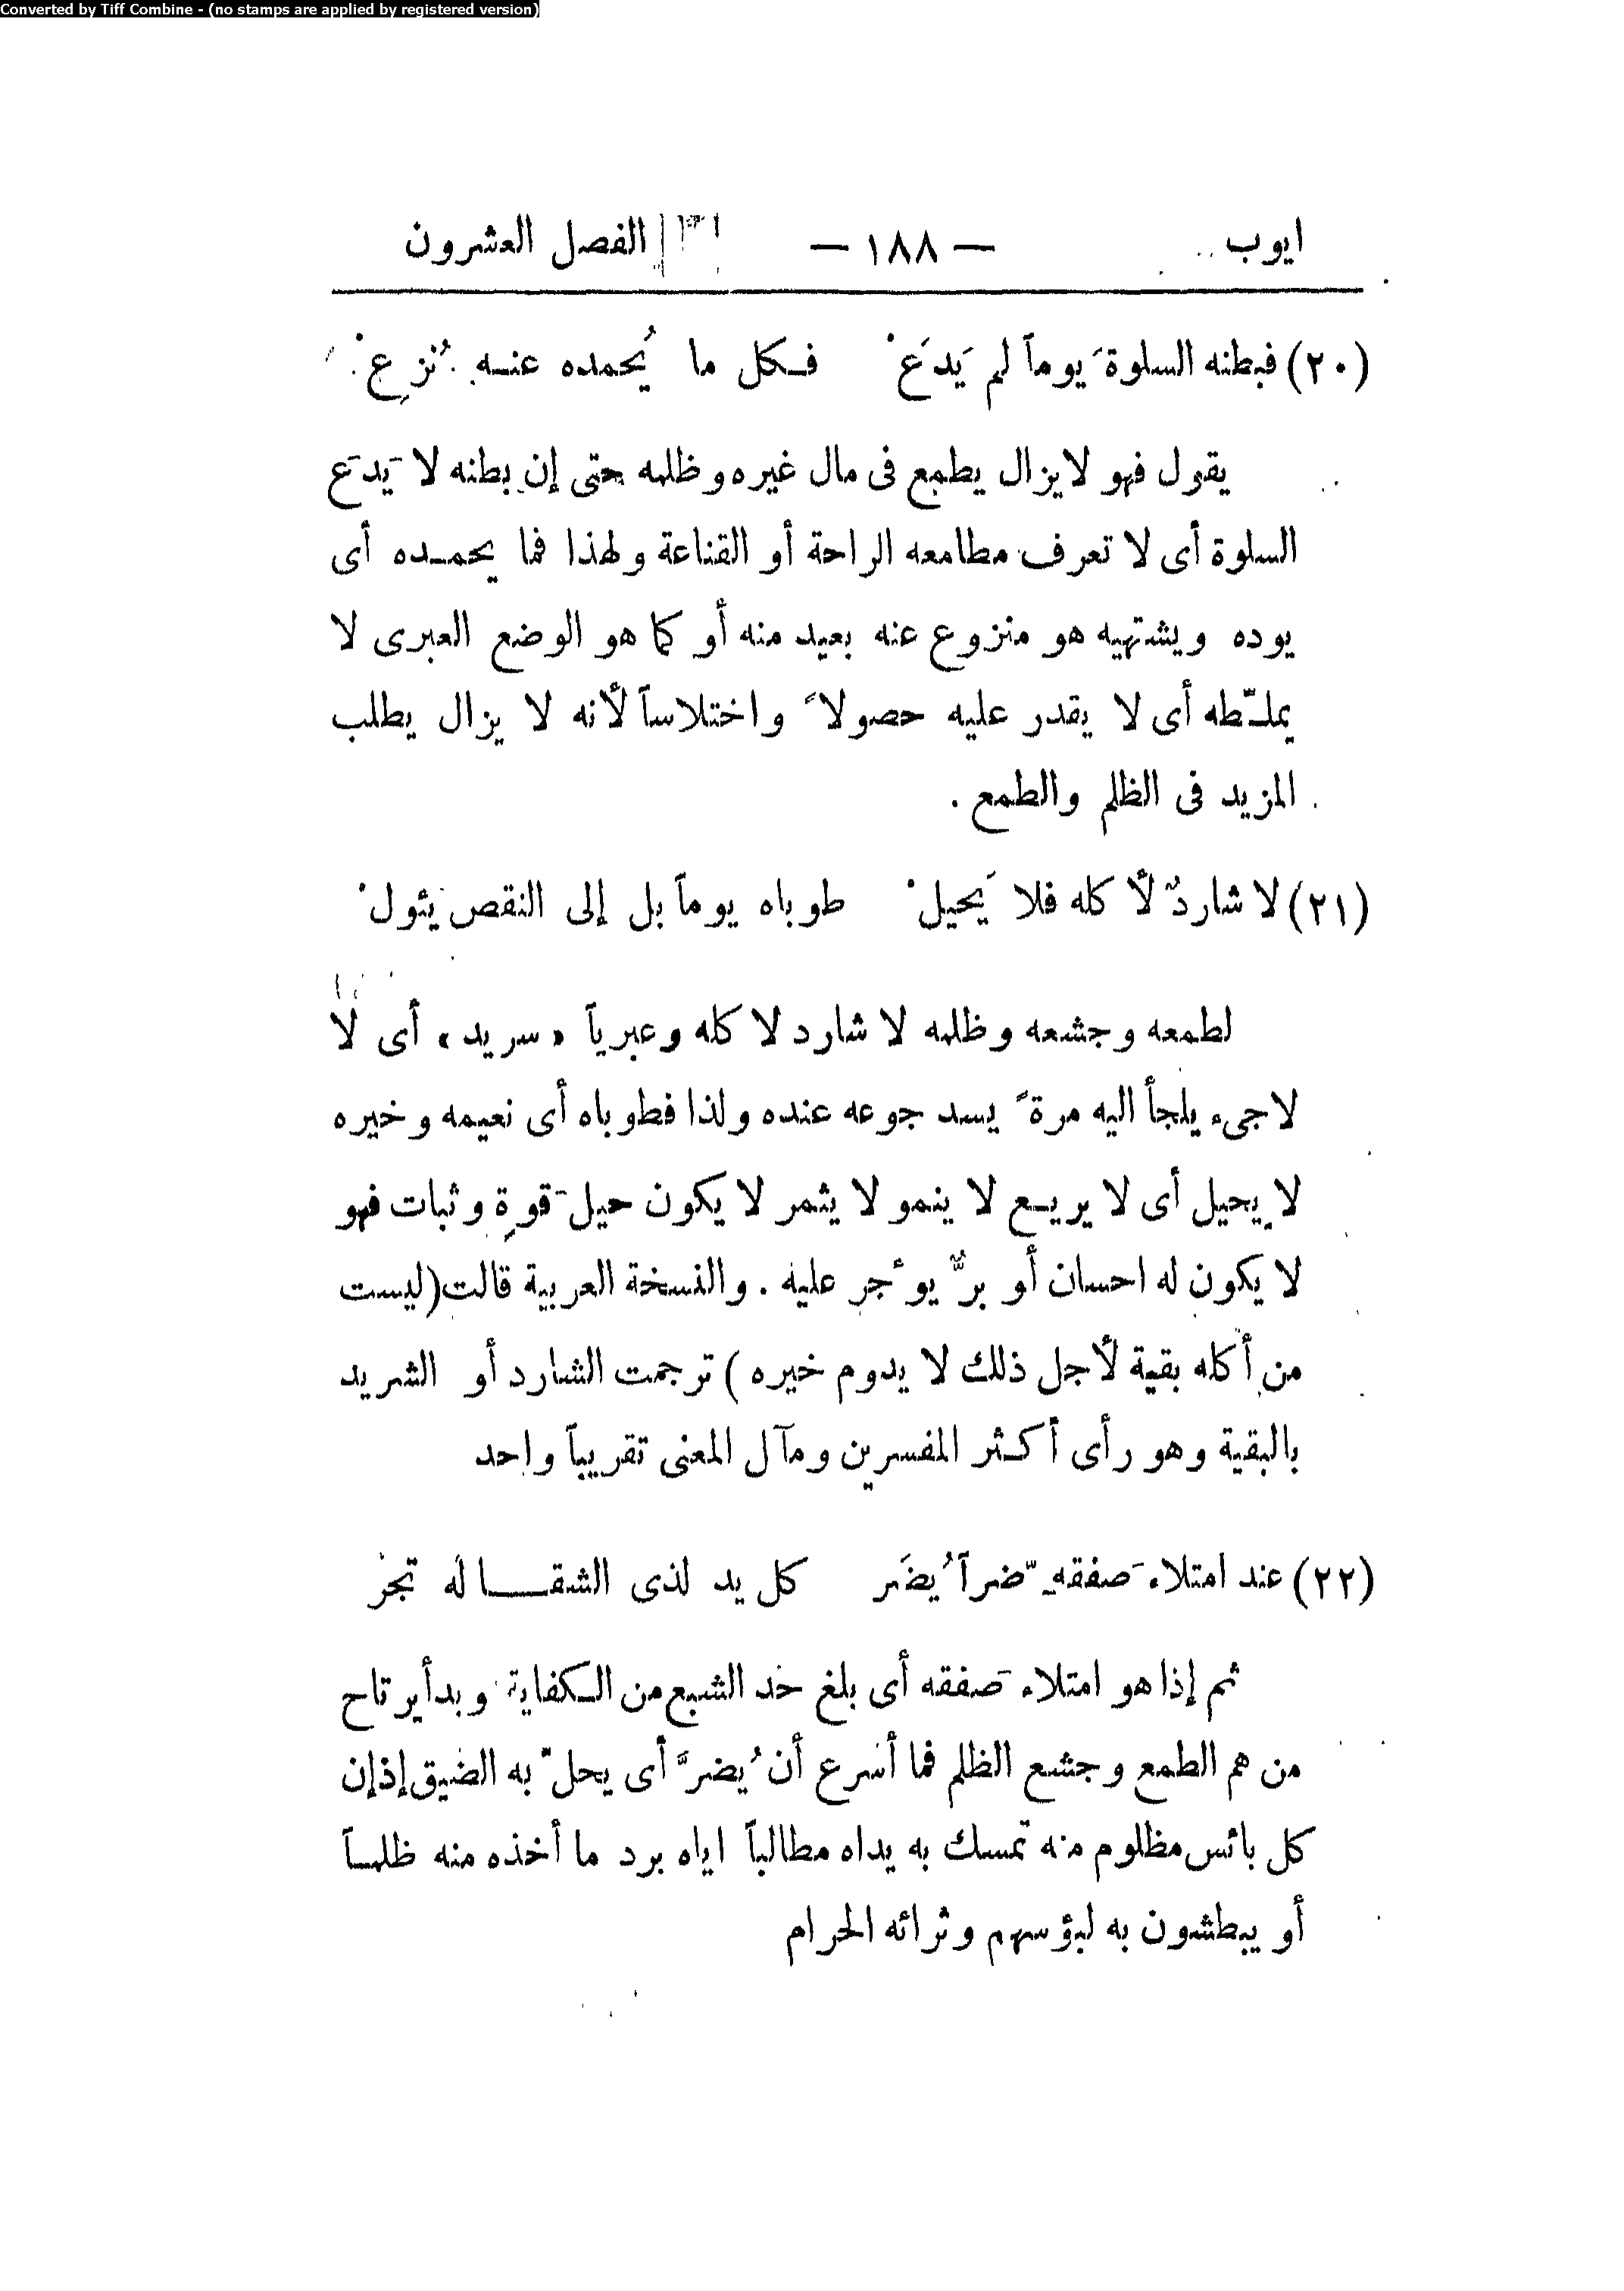 Converted by Tiff Combine - (no stamps are applied by registered version)
ايوب — ١٨٨ — الفصل العشرون
(٢٠) فبطنه السلوةَ يوماً لم يَدَعْ فكل ما يُحمده عنه نُزِعْ
يقول فهو لايزال يطمع فى مال غيره وظلمه حتى إن بطنه لا يَدَع
السلوة أى لا تعرف مطامعه الراحة أو القناعة ولهذا فما يحمده أى
يوده ويشتهيه هو منزوع عنه بعيد منه أو كما هو الوضع العبرى لا
يملّطه أى لا يقدر عليه حصولاً واختلاساً لأنه لا يزال يطلب
المزيد فى الظلم والطمع .
(٢١) لا شاردٌ لأكله فلا يَحيلْ طوباه يوماً بل إلى النقص يئولْ
لطمعه وجشعه وظلمه لا شارد لا كله وعبرياً «سريد» أى لا
لاجىء يلجأ اليه مرةً يسد جوعه عنده ولذا فطوباه أى نعيمه وخيره
لا يحيل أى لا يريع لا ينمو لا يثمر لا يكون حيلَ قوةٍ وثبات فهو
لا يكون له احسان أو برٌّ يؤجر عليه . والنسخة العربية قالت (ليست
من أكله بقية لأجل ذلك لا يدوم خيره) ترجمت الشارد أو الشريد
بالبقية وهو رأى أكثر المفسرين ومآل المعنى تقريباً واحد
(٢٢) عند امتلاء صَفقه ضرّاً يُضَر كل يد لذى الشقا له تجر
ثم إذا هو امتلاء صَفقه أى بلغ حد الشبع من الكفاية وبدأ يرتاح
من هم الطمع وجشع الظلم فما أسرع أن يُضرَّ أى يحلّ به الضيق إذ إن
كل بائس مظلوم منه تمسك به يداه مطالباً اياه برد ما أخذه منه ظلماً
أو يبطشون به لبؤسهم وثرائه الحرام